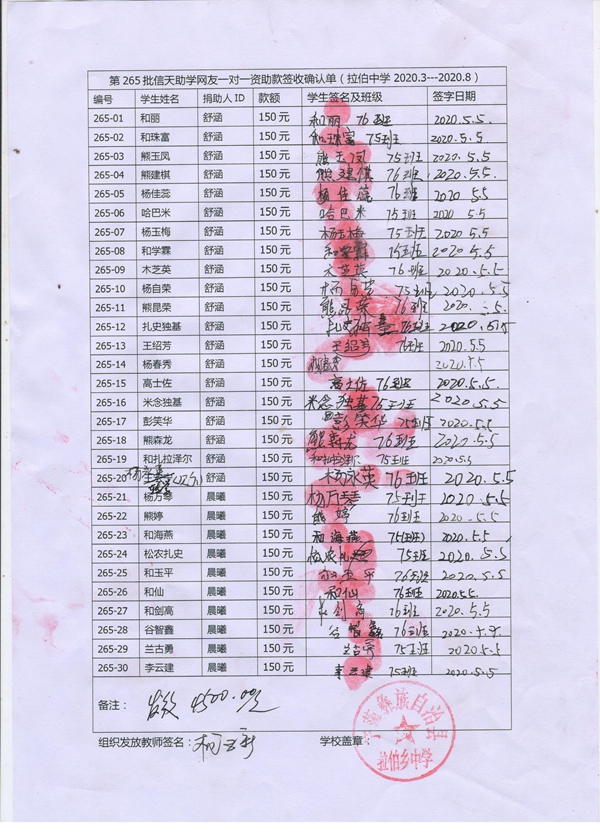 第 265 批信天助学网友一对一资助款签收确认单（拉伯中学 2020.3---2020.8）
编号 学生姓名 捐助人 ID 款额 学生签名及班级 签字日期
265-01 和丽 舒涵 150 元 和丽 76班 2020.5.5.
265-02 和珠富 舒涵 150 元 和珠富 75班 2020.5.5
265-03 熊玉凤 舒涵 150 元 熊玉凤 75班 2020.5.5
265-04 熊建棋 舒涵 150 元 熊建棋 76班 2020.5.5
265-05 杨佳蕊 舒涵 150 元 杨佳蕊 76班 2020 5.5
265-06 哈巴米 舒涵 150 元 哈巴米 75班 2020 5.5
265-07 杨玉梅 舒涵 150 元 杨玉梅 75班 2020 5.5
265-08 和学霖 舒涵 150 元 和学霖 75班 2020 5.5
265-09 木芝英 舒涵 150 元 木芝英 76班 2020.5.5
265-10 杨自荣 舒涵 150 元 杨自荣 75班 2020.5.5
265-11 熊昆荣 舒涵 150 元 熊昆荣 76班 2020. 5.5
265-12 扎史独基 舒涵 150 元 76班 2020.5.5
265-13 王绍芳 舒涵 150 元 王绍芳 76班 2020.5.5
265-14 杨春秀 舒涵 150 元 杨春秀 2020.5.5
265-15 高士佐 舒涵 150 元 高士佐 76班 2020.5.5.
265-16 米念独基 舒涵 150 元 米念独基 75班 2020.5.5
265-17 彭笑华 舒涵 150 元 彭笑华 75班 2020.5.5
265-18 熊森龙 舒涵 150 元 熊森龙 76班 2020.5.5
265-19 和扎拉泽尔 舒涵 150 元 和扎拉泽尔 75班 2020.5.5
265-20 杨永英 舒涵 150 元 杨永英 76班 2020.5.5
265-21 杨万琴 晨曦 150 元 杨万琴 75班 2020.5.5
265-22 熊婷 晨曦 150 元 熊婷 76班 2020.5.5
265-23 和海燕 晨曦 150 元 和海燕 75(班) 2020.5.5
265-24 松农扎史 晨曦 150 元 松农扎史 75班 2020.5.5
265-25 和玉平 晨曦 150 元 和玉平 76班 2020.5.5
265-26 和仙 晨曦 150 元 和仙 76班 2020.5.5
265-27 和剑高 晨曦 150 元 和剑高 76班 2020.5.5
265-28 谷智鑫 晨曦 150 元 谷智鑫 76班 2020.5.5.
265-29 兰古勇 晨曦 150 元 兰古勇 75班 2020.5.5
265-30 李云建 晨曦 150 元 李云建 75班 2020.5.5
备注： 发放 4500.00元
组织发放教师签名： 学校盖章：
蒗彝族自治县
拉伯乡中学